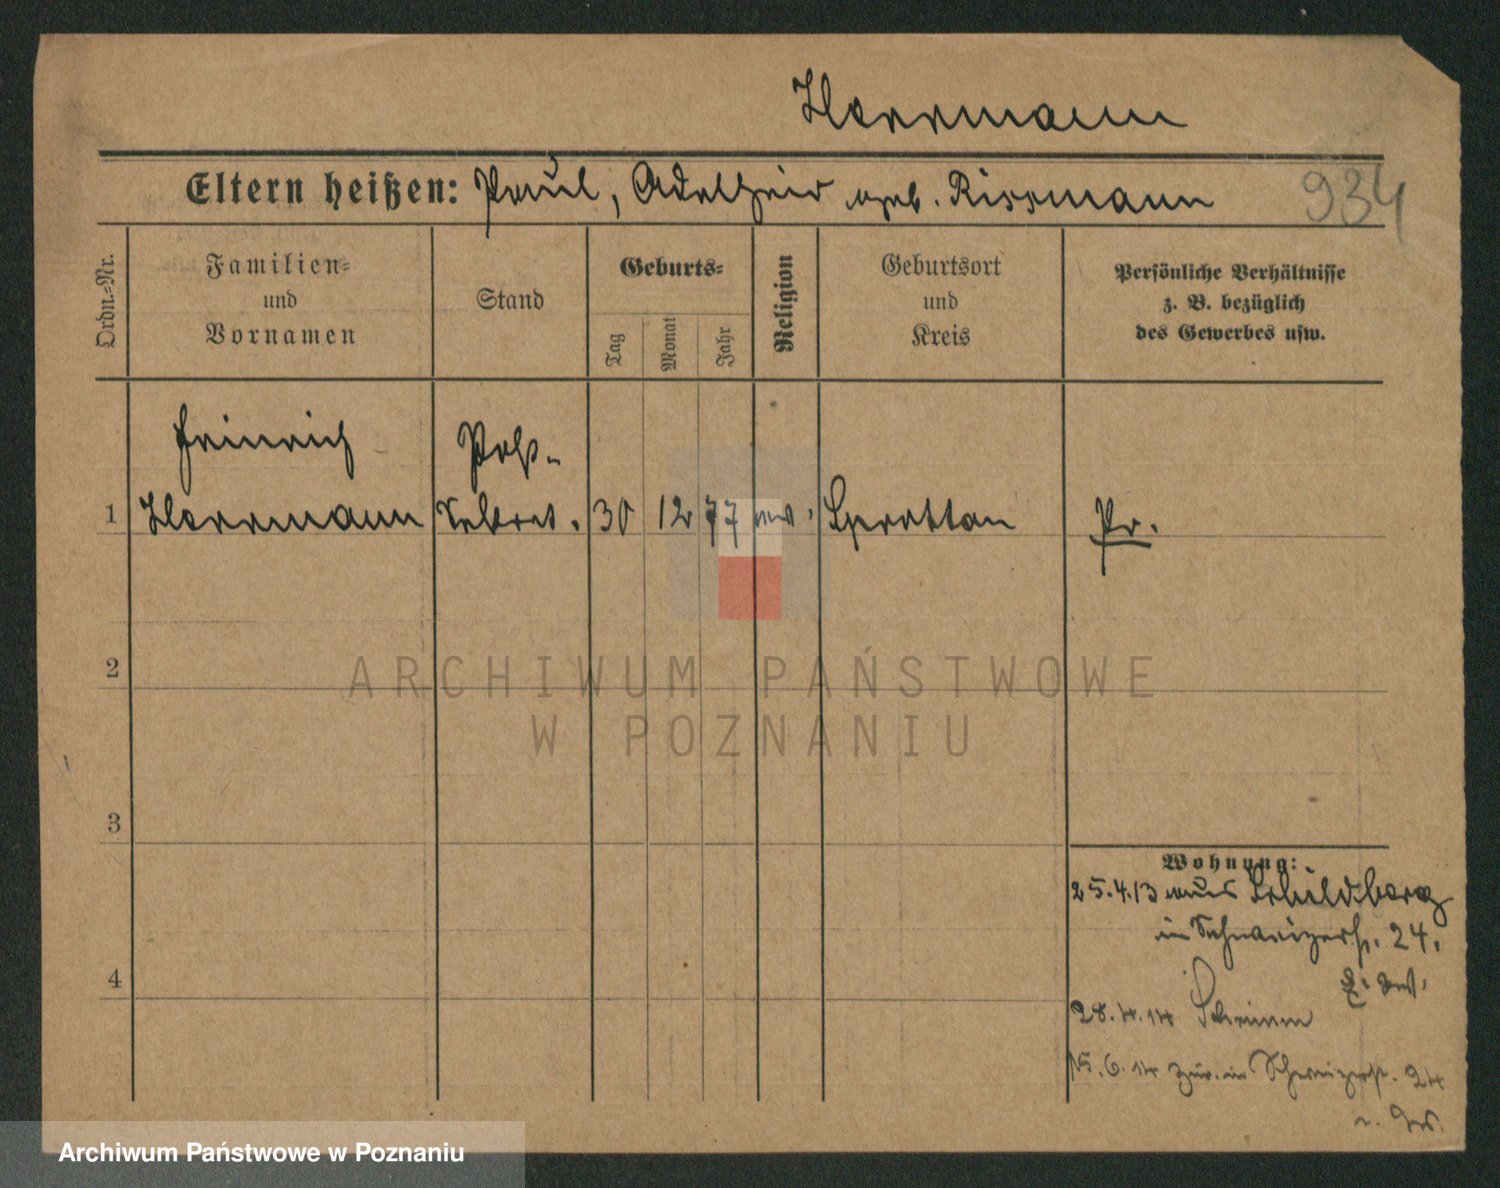 Herrmann
Eltern heißen: Paul, Adelheid geb. Rissmann
934
Ordn.-Nr.
Familien-
und
Vornamen
Stand
Geburts-
Tag
Monat
Jahr
Religion
Geburtsort
und
Kreis
Persönliche Verhältnisse
z. B. bezüglich
des Gewerbes usw.
Heinrich
Post-
1 Herrmann Sekret. 30 12 77 ev. Sprottau Pr.
2
3
4
Wohnung:
25.4.13 aus Schildberg
in Schweizerst. 24.
28.4.14 Schrimm
15.6.14 zur. in Schweizerst. 24
ARCHIWUM PAŃSTWOWE
W POZNANIU
Archiwum Państwowe w Poznaniu